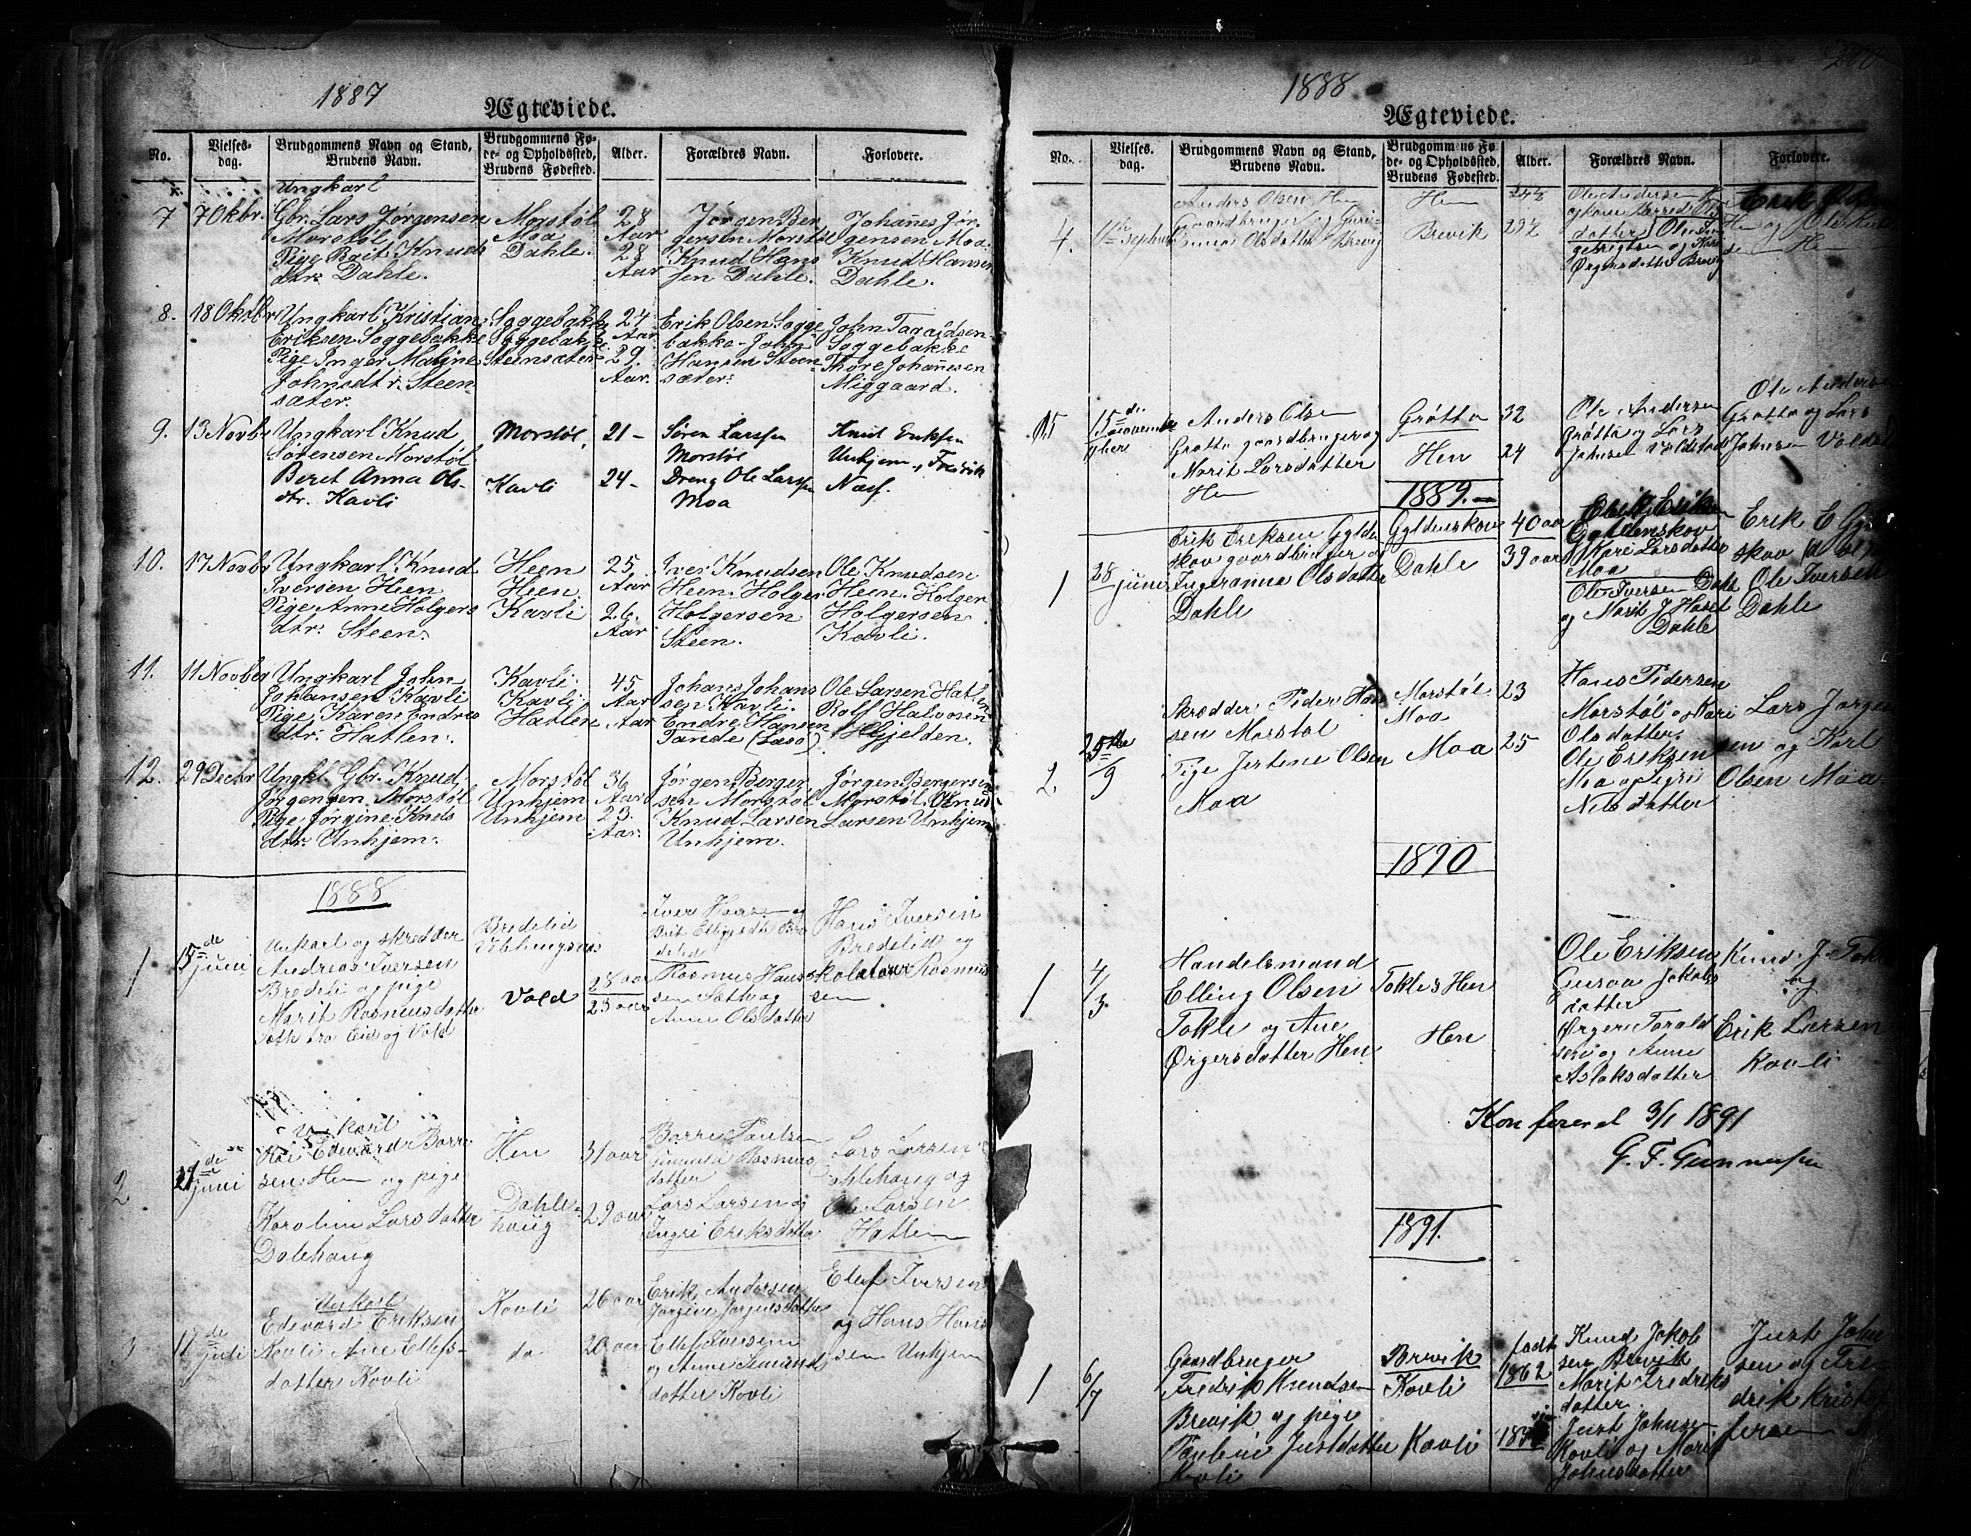 1887
Ægteviede.
No.
Vielses-
dag.
Brudgommens Navn og Stand,
Brudens Navn.
Brudgommens Fø-
de- og Opholdssted,
Brudens Fødested.
Alder.
Forældres Navn.
Forlovere.
7
7 Oktbr.
Ungkarl
Gbr. Lars Jørgensen
Morstøl
Pige Brit Knuds
dtr. Dahle.
Morstøl
Moa
Dahle.
28
Aar
28
Aar
Jørgen Ber
gersen Morstøl
Knud Hans
sen Dahle.
Johanes Jør
gensen Moa.
Knud Hansen
Dahle.
8.
18 Oktbr
Ungkarl Kristian
Eriksen Soggebakke
Pige Inger Maline
Johnsdtr. Steen
sæter.
Soggebakke
Soggebakke
Steensæter
24
Aar
29.
Aar.
Erik Olsen Sogge
bakke - John
Hansen Steen
sæter.
John Taraldsen
Soggebakke
Thore Johannesen
Miggaard.
9.
13 Novbr
Ungkarl Knud
Sørensen Morstøl
Beret Anna Ols-
dtr. Kavli
Morstøl,
Kavli
21 -
24 -
Søren Larsen
Morstøl
Dreng Ole Larsen
Moa
Knut Eriksen
Unhjem, Fredrik
Næss.
10.
17 Novbr
Ungkarl Knud
Iversen Heen
Pige Anne Holgers
dtr. Steen.
Heen
Heen
Kavli
25
Aar
26.
Aar
Iver Knudsen
Heen. Holger
Holgersen
Steen.
Ole Knudsen
Heen. Holger
Holgersen
Kavli.
11.
11 Novbr
Ungkarl John
Johansen Kavli
Pige Karen Endres
dtr. Hatlen.
Kavli
Kavli
Hatlen
45
Aar
Aar
Johans Johans
sen Kavli.
Endre Hansen
Tande
Ole Larsen Hatlen
Rolf Halvosen
Hjelden.
12.
29 Decbr
Ungkl. Gbr. Knud
Jørgensen Morstøl
Pige Jørgine Knds
dtr. Unhjem.
Morstøl
Unhjem
Unhjem
36
Aar
23.
Aar.
Jørgen Berger
sen Morstøl
Knud Larsen
Unhjem.
Jørgen Bergersen
Morstøl. Knud
Larsen Unhjem
1888
1
15de
juni
Unkarl og skrædder
Andreas Iversen
Bredeli og pige
Marit Rasmusdatter
Vold
Bredelid
Vold
28 aar
23 aar
Iver Hansen og
Rasmus Hans
sen Sætv og
Anne Olsdatter
Hans Iversen
Bredelid og
Rasmus
sen
2
29de
juni
Unkarl
Edevard Barre
sen Hen og pige
Karoline Larsdatter
Dalehaug
Hen
Dahle-
haug
31 aar
29 aar
Rasmus
datter
Lars Larsen og
Ingri Eriksdatter
Lars Larsen
Dahlehaug og
Ole Larsen
Hatlen
3
17de
juli
Unkarl
Edevard Eriksen
Kovli Ane Ellefs-
datter Kovli
Kovli
do
26 aar
20 aar
Erik Andersen
Ellef Iversen
og Anne
datter Kovli
Elef Iversen
og Hans Hans
sen Unhjem
1888
Ægteviede.
No.
Vielses-
dag.
Brudgommens Navn og Stand,
Brudens Navn.
Brudgommens Fø-
de- og Opholdssted,
Brudens Fødested.
Alder.
Forældres Navn.
Forlovere.
4.
Anders Olsen Hen
Olsdatter Brevig
Hen
Brevik
24½
29½
Ole Andersen
datter Ole In
gebrigtsen og
Ørgersdatter Brevig
Hen
5
15de
november
Anders Olsen
Grotta gaardbruger og
Marit Larsdatter
Hen
Grøtta
Hen
32
24
Ole Andersen
Grøtta og Lars
Johnsen Voldstad
Ole Anders
Grotta og Lars
Johnsen Volds
1889.
1
28
juni
Erik Eriksen Gylden
skov gaardbruger og
Ingeranna Olsdatter
Dahle
Gyldenskov
Dahle
40 aar
39 aar
Erik
Gyldenskov
Kari Larsdatter
Moa
Ole Iversen Dahle
og Marit J Haset
Dahle
Erik E Gyl
skov
Ole Iversen
Dahle
2.
25de
9
Skrædder Peder Han
sen Morstøl
Pige Jertine Olsen
Moa
Morstøl
Moa
Moa
23
25
Hans Pedersen
Morstøl og Kari
Olsdatter
Ole Eriksen
Moa og Segri
Nilsdatter
Lars Jørgen
sen og Karl
Olsen Moa
1890
1
4/3
Handelsmand
Elling Olsen
Tokle og Ane
Ørgersdatter Hen
Tokles Hen
Hen
Ole Eriksen
Guroa Jakobs
datter
Ørger Tarald
sen og Anne
Aslaksdatter
Knud J. Tokle
og
Erik Larsen
Kovli
Konfereret 3/1 1891
G. F. Gunnersen
1891.
1
6/7
Gaardbruger
Fredrik Knudsen
Brevik og pige
Pauline Justdatter
Kovli
Brevik
Kovli
Kovli
født
1862
Knud Jakob
sen Brevik
Marit Fredriks
datter
Just Johnsen
Kovli og Mari
Johnsdatter
Just John
sen og Fre
drik Krist
fersen